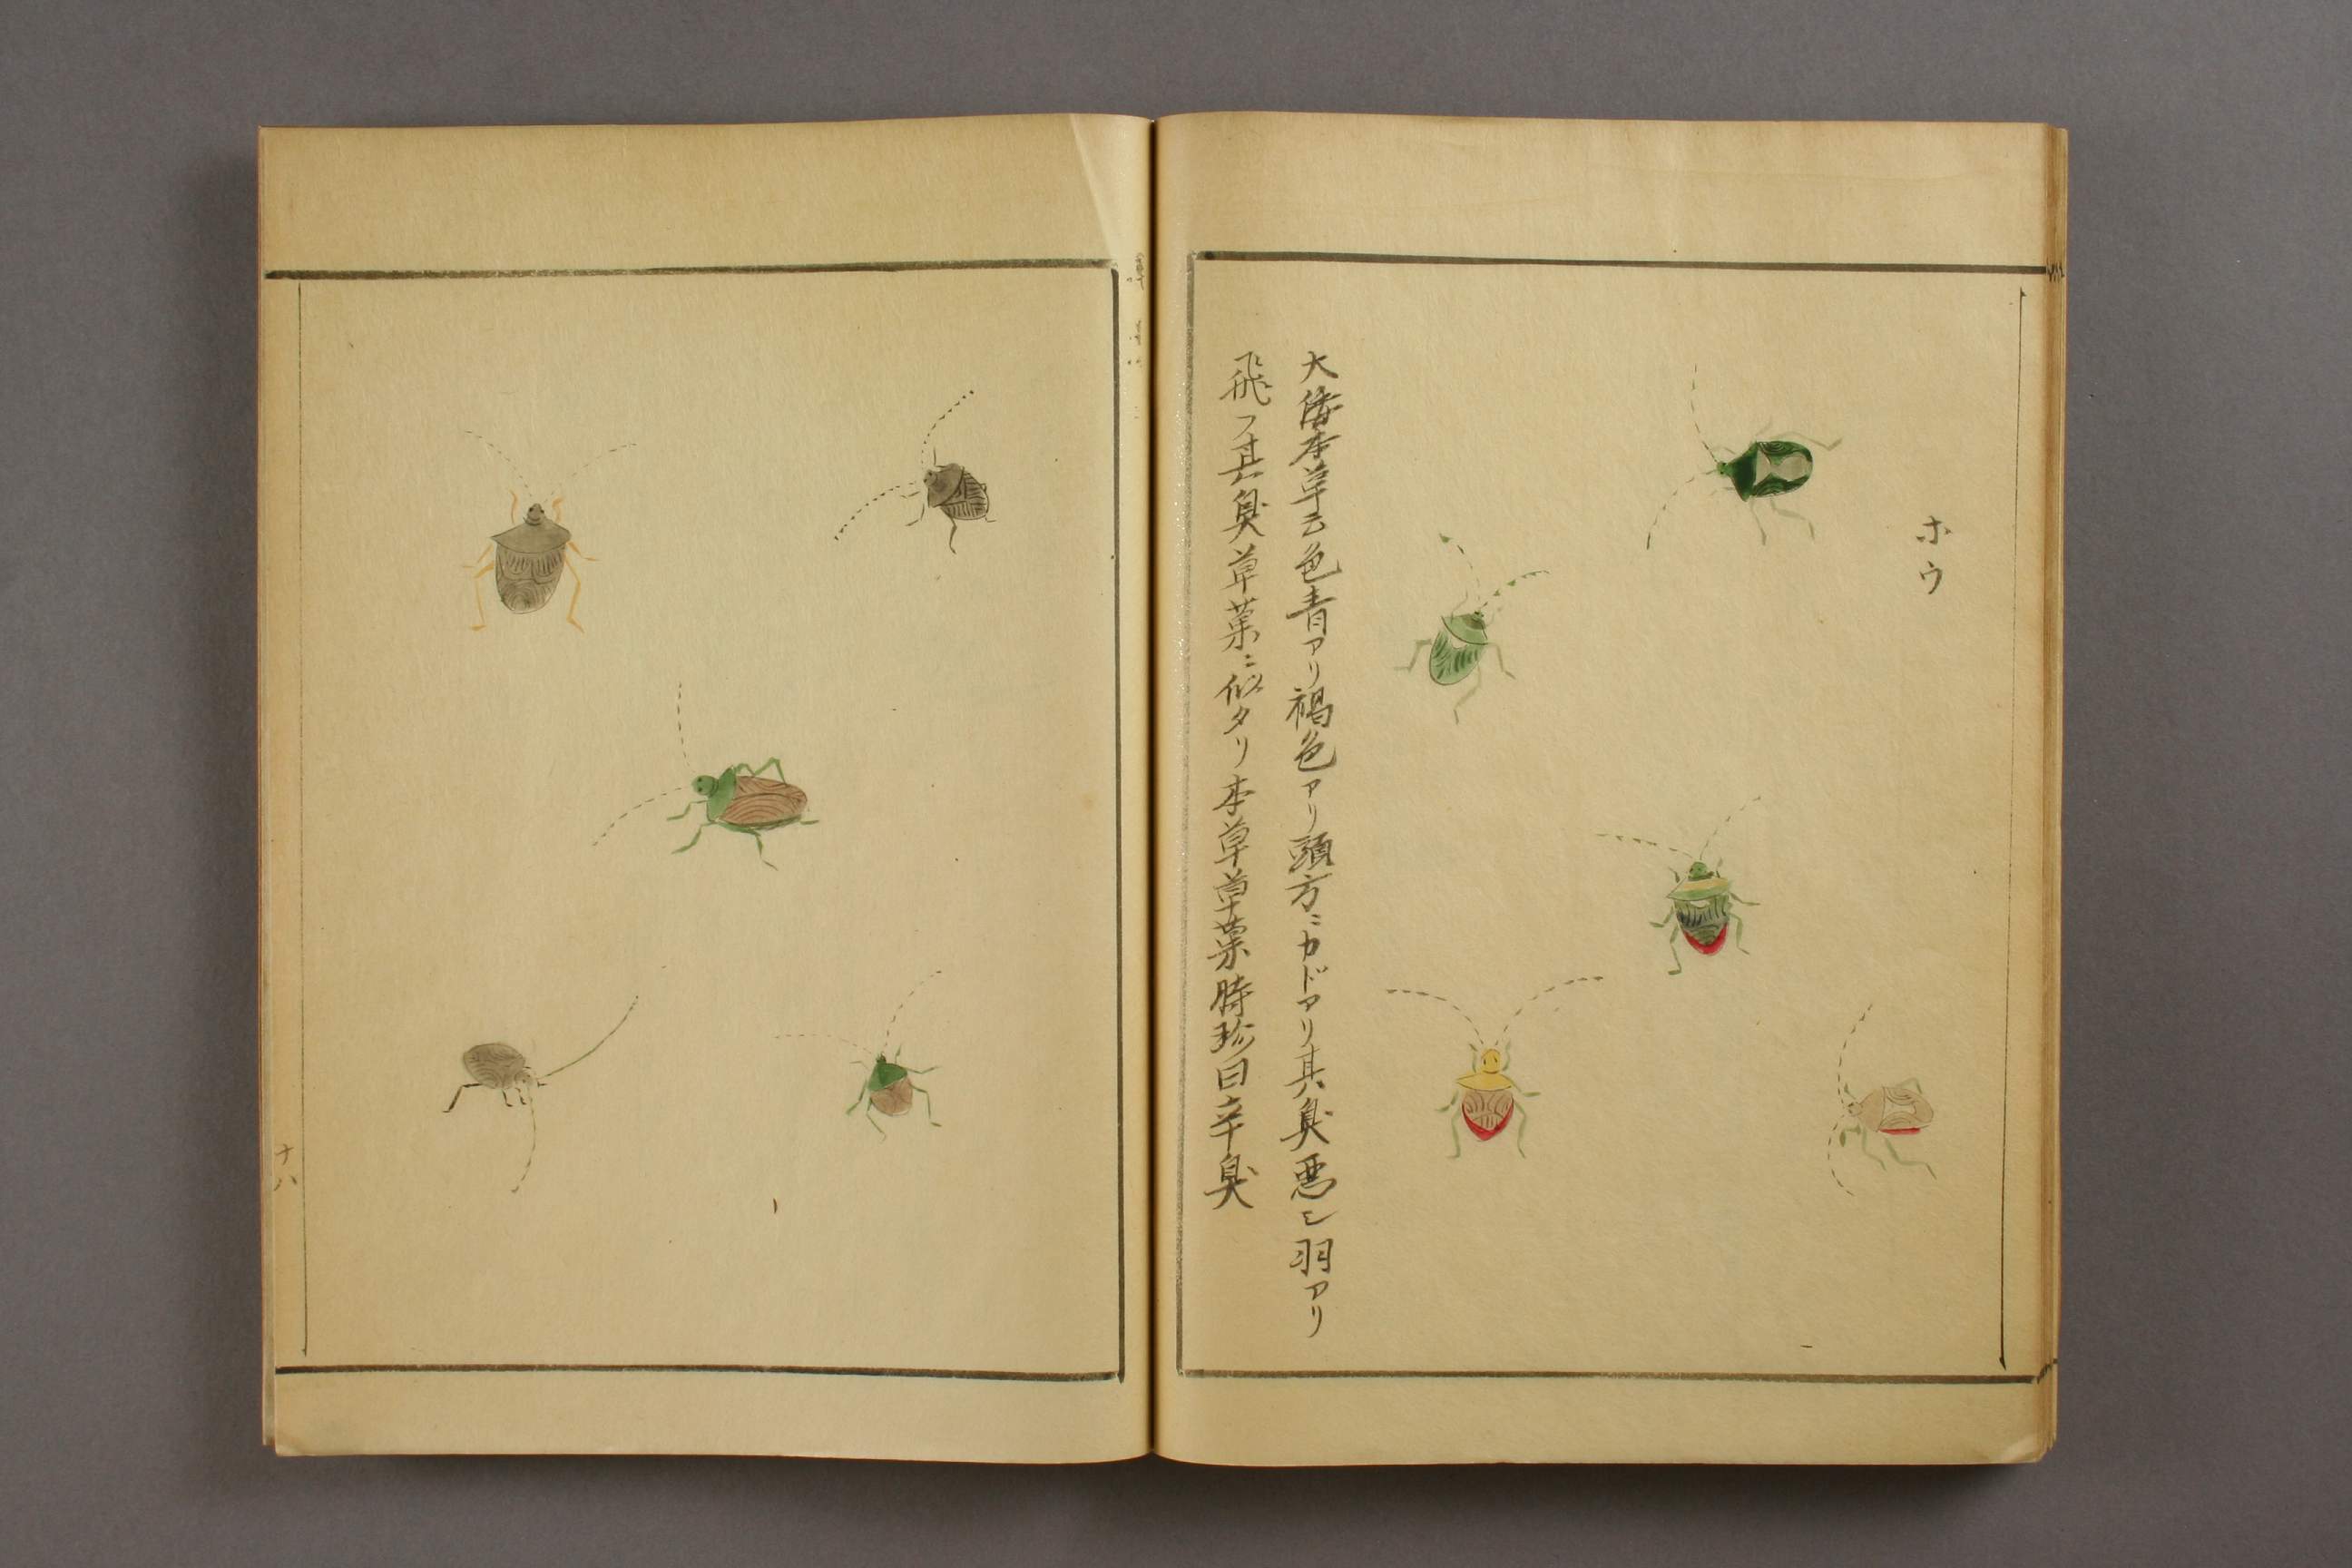 ホウ
大倭本草云色青アリ褐色アリ頭方ニカドアリ其臭悪シ羽アリ
飛フ其臭草菓ニ似タリ本草草菓時珍曰辛臭
十八